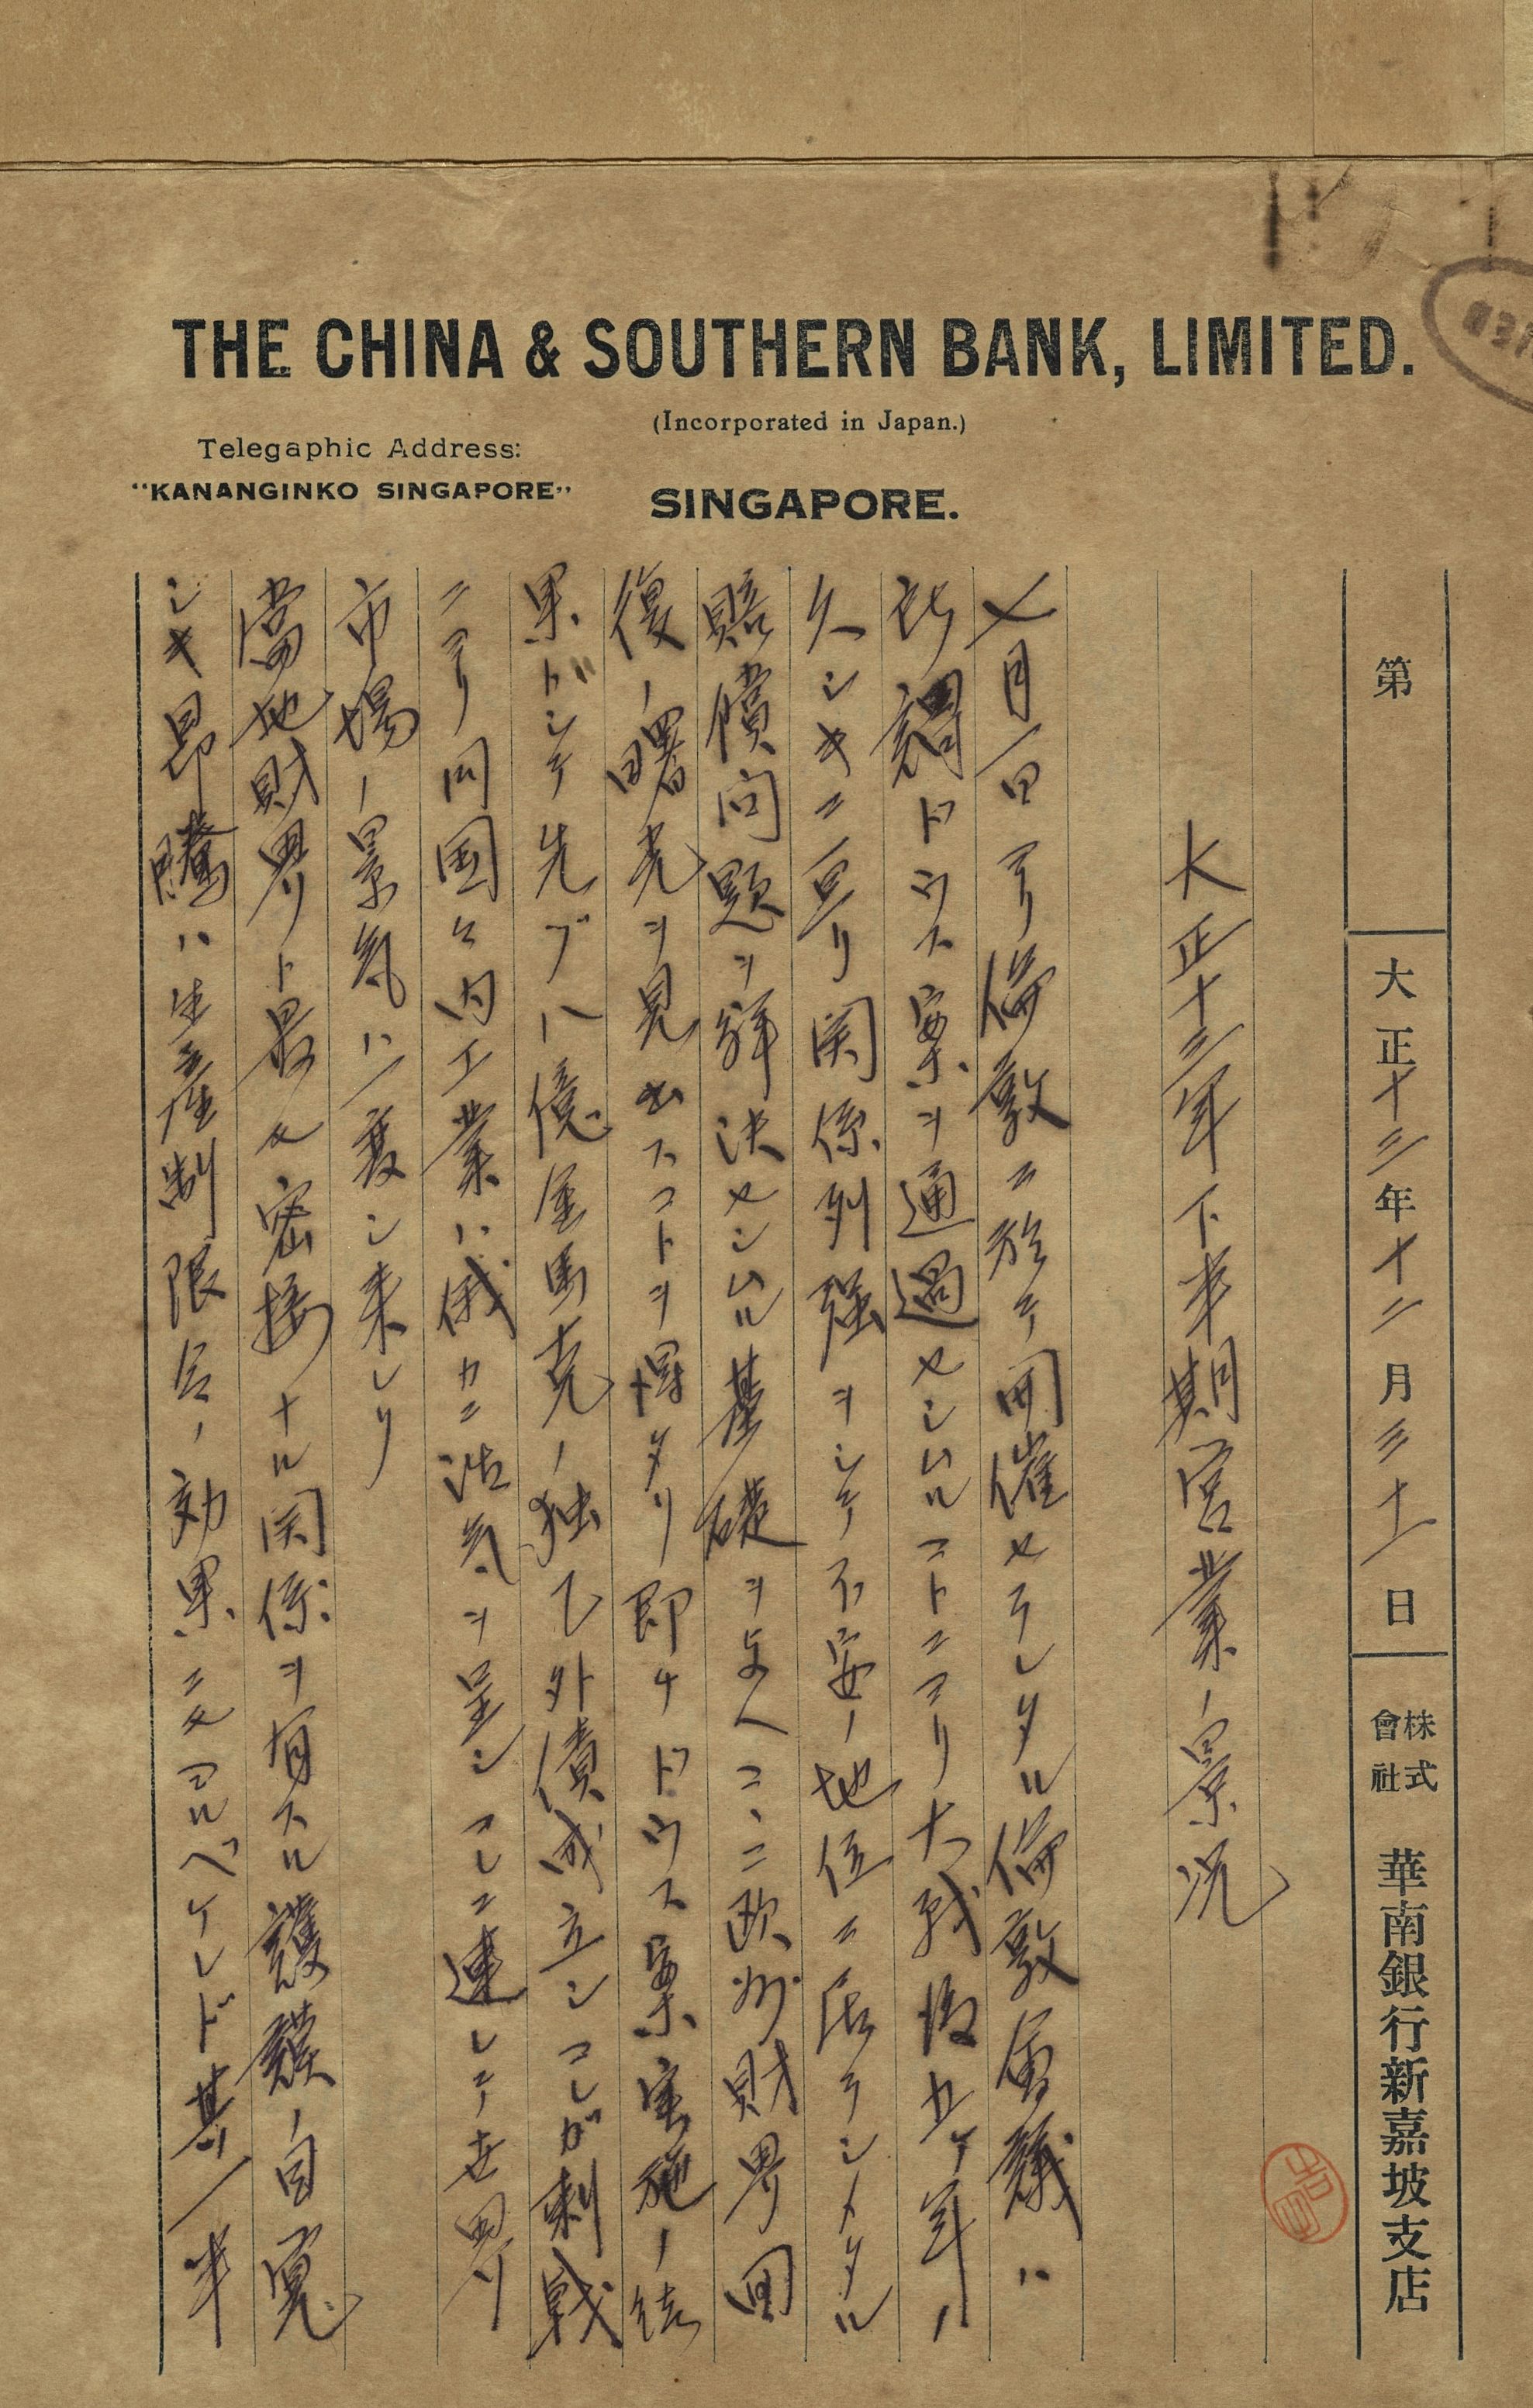 THE CHINA & SOUTHERN BANK, LIMITED.
(Incorporated in Japan.)
Telegaphic Address:
"KANANGINKO SINGAPORE"
SINGAPORE.
第 大正十三年十二月三十一日 株式會社 華南銀行新嘉坡支店
大正十三年下半期営業ノ景況
七月一日ヨリ倫敦ニ於テ開催セラレタル倫敦会議ハ
於調ドウス案ヲ通過セシムルコトニヨリ大戦後五ケ年ノ
久シキニ亘リ関係列強ヲシテ不安ノ地位ニ居ラシメタル
賠償問題ヲ解決セシムル基礎ヲ与ヘコヽニ欧州財界回
復ノ曙光ヲ見出スコトヲ得タリ即チドウス案実施ノ結
果トシテ先ヅ八億金馬克ノ独乙外債成立シコレガ刺戟
ニヨリ同国々内工業ハ俄カニ活気ヲ呈シコレニ連レテ世界
市場ノ景気ハ一変シ来レリ
当地財界ト最モ密接ナル関係ヲ有スル護謨ノ目覚
シキ昂騰ハ生産制限令ノ効果ニモヨルベケレド其一半